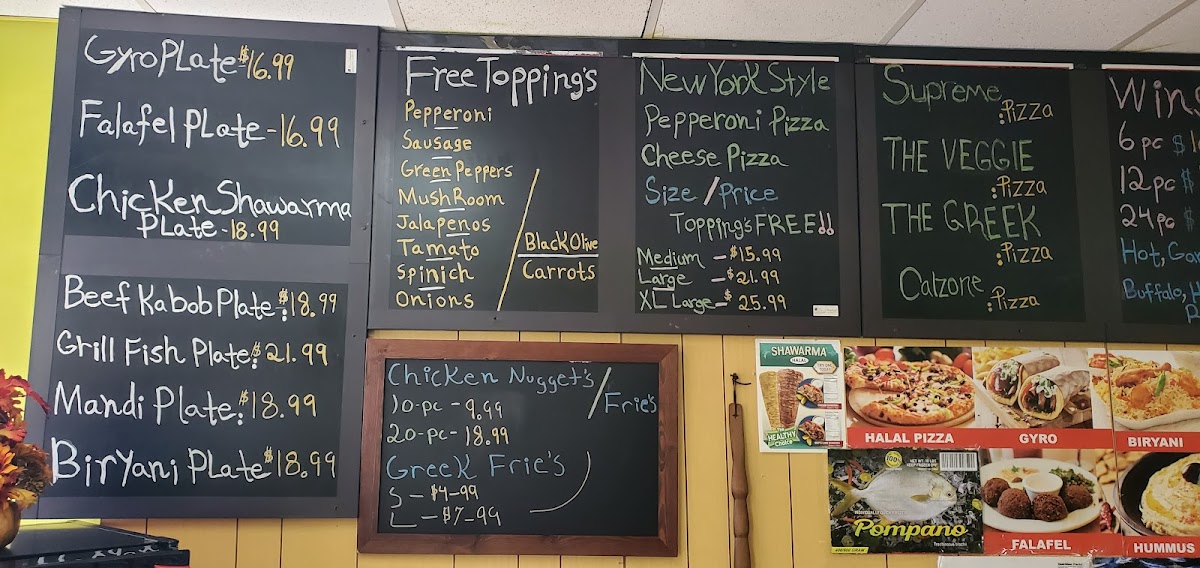 Gyro Plate $16.99
Falafel Plate - 16.99
Chicken Shawarma
Plate - 18.99
Beef Kabob Plate: $18.99
Grill Fish Plate: $21.99
Mandi Plate: $18.99
Biryani Plate $18.99
Free Topping's
Pepperoni
Sausage
Green Peppers
MushRoom
Jalapenos
Tamato
Spinich
Onions
Black Olive
Carrots
New York Style
Pepperoni Pizza
Cheese Pizza
Size / Price
Topping's FREE!!
Medium - $15.99
Large - $21.99
XL Large - $25.99
Supreme
:Pizza
THE VEGGIE
:Pizza
THE GREEK
:Pizza
Calzone
:Pizza
6 pc $
12pc $
24pc $
Hot,
Buffalo,
Chicken Nugget's / Frie's
10-pc - 9.99
20-pc - 18.99
Greek Frie's
S - $4-99
L - $7-99
SHAWARMA
HALAL
HEALTHY
Choice
HALAL PIZZA
GYRO
BIRYANI
Pompano
FALAFEL
HUMMUS